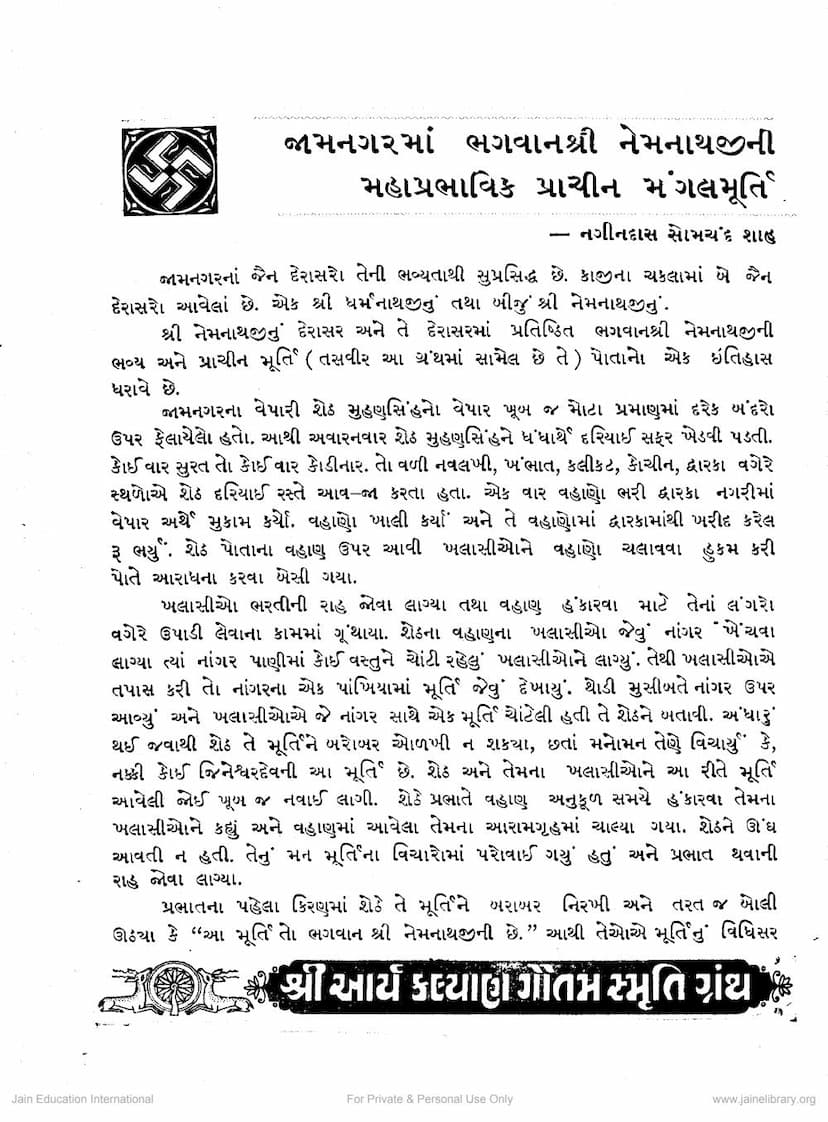 જામનગરમાં ભગવાનશ્રી નેમનાથજીની
મહાપ્રભાવિક પ્રાચીન મંગલમૂર્તિ
— નગીનદાસ સોમચંદ શાહ
જામનગરનાં જૈન દેરાસરો તેની ભવ્યતાથી સુપ્રસિદ્ધ છે. કાજીના ચકલામાં બે જૈન
દેરાસરો આવેલાં છે. એક શ્રી ધર્મનાથજીનું તથા બીજું શ્રી નેમનાથજીનું.
શ્રી નેમનાથજીનું દેરાસર અને તે દેરાસરમાં પ્રતિષ્ઠિત ભગવાનશ્રી નેમનાથજીની
ભવ્ય અને પ્રાચીન મૂર્તિ (તસવીર આ ગ્રંથમાં સામેલ છે તે) પોતાનો એક ઇતિહાસ
ધરાવે છે.
જામનગરના વેપારી શેઠ મુહણસિંહનો વેપાર ખૂબ જ મોટા પ્રમાણમાં દરેક બંદરો
ઉપર ફેલાયેલો હતો. આથી અવારનવાર શેઠ મુહણસિંહને ધંધાર્થે દરિયાઈ સફર ખેડવી પડતી.
કોઈ વાર સુરત તો કોઈ વાર કોડીનાર. તો વળી નવલખી, ખંભાત, કલીકટ, કોચીન, દ્વારકા વગેરે
સ્થળોએ શેઠ દરિયાઈ રસ્તે આવ–જા કરતા હતા. એક વાર વહાણો ભરી દ્વારકા નગરીમાં
વેપાર અર્થે મુકામ કર્યો. વહાણો ખાલી કર્યાં અને તે વહાણોમાં દ્વારકામાંથી ખરીદ કરેલ
રૂ ભર્યું. શેઠ પોતાના વહાણ ઉપર આવી ખલાસીઓને વહાણો ચલાવવા હુકમ કરી
પોતે આરાધના કરવા બેસી ગયા.
ખલાસીઓ ભરતીની રાહ જોવા લાગ્યા તથા વહાણ હંકારવા માટે તેનાં લંગરો
વગેરે ઉપાડી લેવાના કામમાં ગૂંથાયા. શેઠના વહાણના ખલાસીઓ જેવું નાંગર ખેંચવા
લાગ્યા ત્યાં નાંગર પાણીમાં કોઈ વસ્તુને ચોંટી રહેલું ખલાસીઓને લાગ્યું. તેથી ખલાસીઓએ
તપાસ કરી તો નાંગરના એક પાંખિયામાં મૂર્તિ જેવું દેખાયું. થોડી મુસીબતે નાંગર ઉપર
આવ્યું અને ખલાસીઓએ જે નાંગર સાથે એક મૂર્તિ ચોંટેલી હતી તે શેઠને બતાવી. અંધારું
થઈ જવાથી શેઠ તે મૂર્તિને બરોબર ઓળખી ન શકયા, છતાં મનોમન તેણે વિચાર્યું કે,
નક્કી કોઈ જિનેશ્વરદેવની આ મૂર્તિ છે. શેઠ અને તેમના ખલાસીઓને આ રીતે મૂર્તિ
આવેલી જોઈ ખૂબ જ નવાઈ લાગી. શેઠે પ્રભાતે વહાણ અનુકૂળ સમયે હંકારવા તેમના
ખલાસીઓને કહ્યું અને વહાણમાં આવેલા તેમના આરામગૃહમાં ચાલ્યા ગયા. શેઠને ઊંઘ
આવતી ન હતી. તેનું મન મૂર્તિના વિચારોમાં પરોવાઈ ગયું હતું અને પ્રભાત થવાની
રાહ જોવા લાગ્યા.
પ્રભાતના પહેલા કિરણમાં શેઠે તે મૂર્તિને બરાબર નિરખી અને તરત જ બોલી
ઊઠયા કે “આ મૂર્તિ તો ભગવાન શ્રી નેમનાથજીની છે.” આથી તેઓએ મૂર્તિનું વિધિસર
શ્રી આર્ય કલ્યાણ ગૌતમ સ્મૃતિ ગ્રંથ
Jain Education International
For Private & Personal Use Only
www.jainelibrary.org